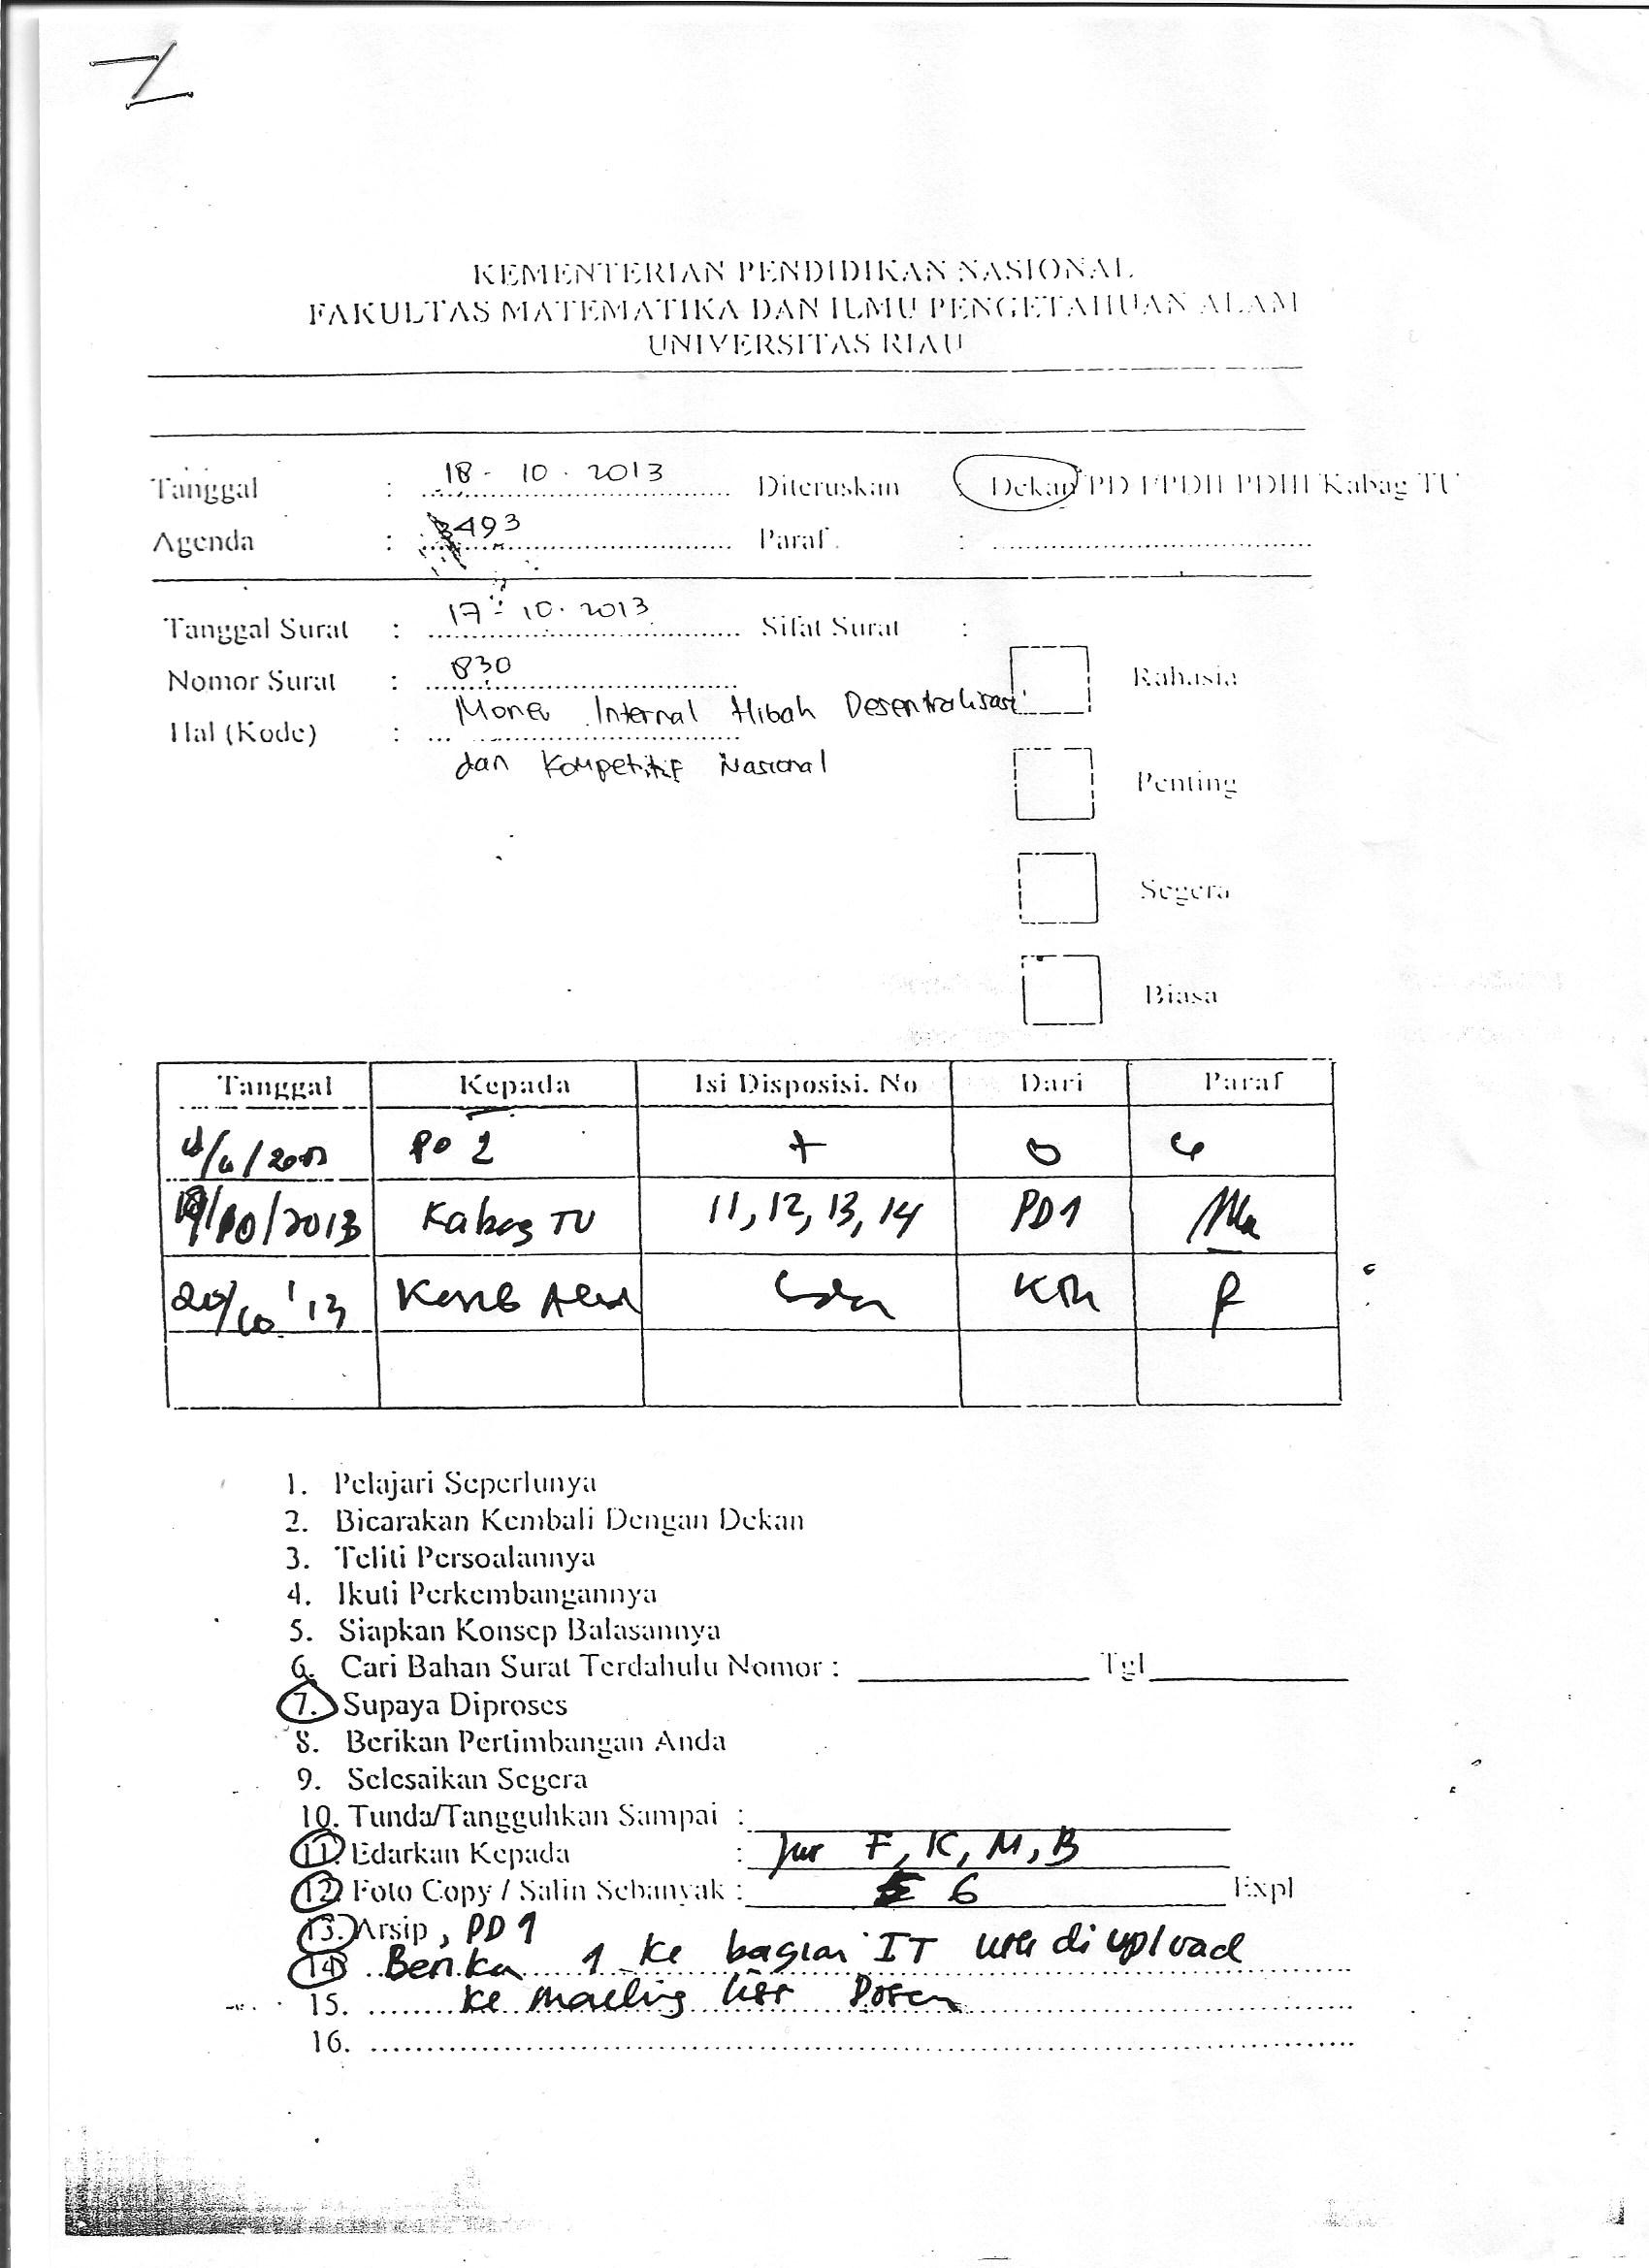 KEMENTERIAN PENDIDIKAN NASIONAL
FAKULTAS MATEMATIKA DAN ILMU PENGETAHUAN ALAM
UNIVERSITAS RIAU
Tanggal : 18 - 10 - 2013 Diteruskan : Dekan/PD I/PDII PDIII Kabag TU
Agenda : 3493 Paraf :
Tanggal Surat : 17 - 10 - 2013 Sifat Surat :
Nomor Surat : 830 Rahasia
Hal (Kode) : Monev Internal Hibah Desentralisasi
dan Kompetitif Nasional Penting
Segera
Biasa
Tanggal Kepada Isi Disposisi. No Dari Paraf
7
19/10/2013 Kabag TU 11, 12, 13, 14 PD1
20/10 '13
1. Pelajari Seperlunya
2. Bicarakan Kembali Dengan Dekan
3. Teliti Persoalannya
4. Ikuti Perkembangannya
5. Siapkan Konsep Balasannya
6. Cari Bahan Surat Terdahulu Nomor : Tgl
7. Supaya Diproses
8. Berikan Pertimbangan Anda
9. Selesaikan Segera
10. Tunda/Tangguhkan Sampai :
11. Edarkan Kepada : Jur F, K, M, B
12. Foto Copy / Salin Sebanyak : 6 Expl
13. Arsip, PD 1
14. Berika 1 ke bagian IT utk di upload
15. ke mailing list Dosen
16.